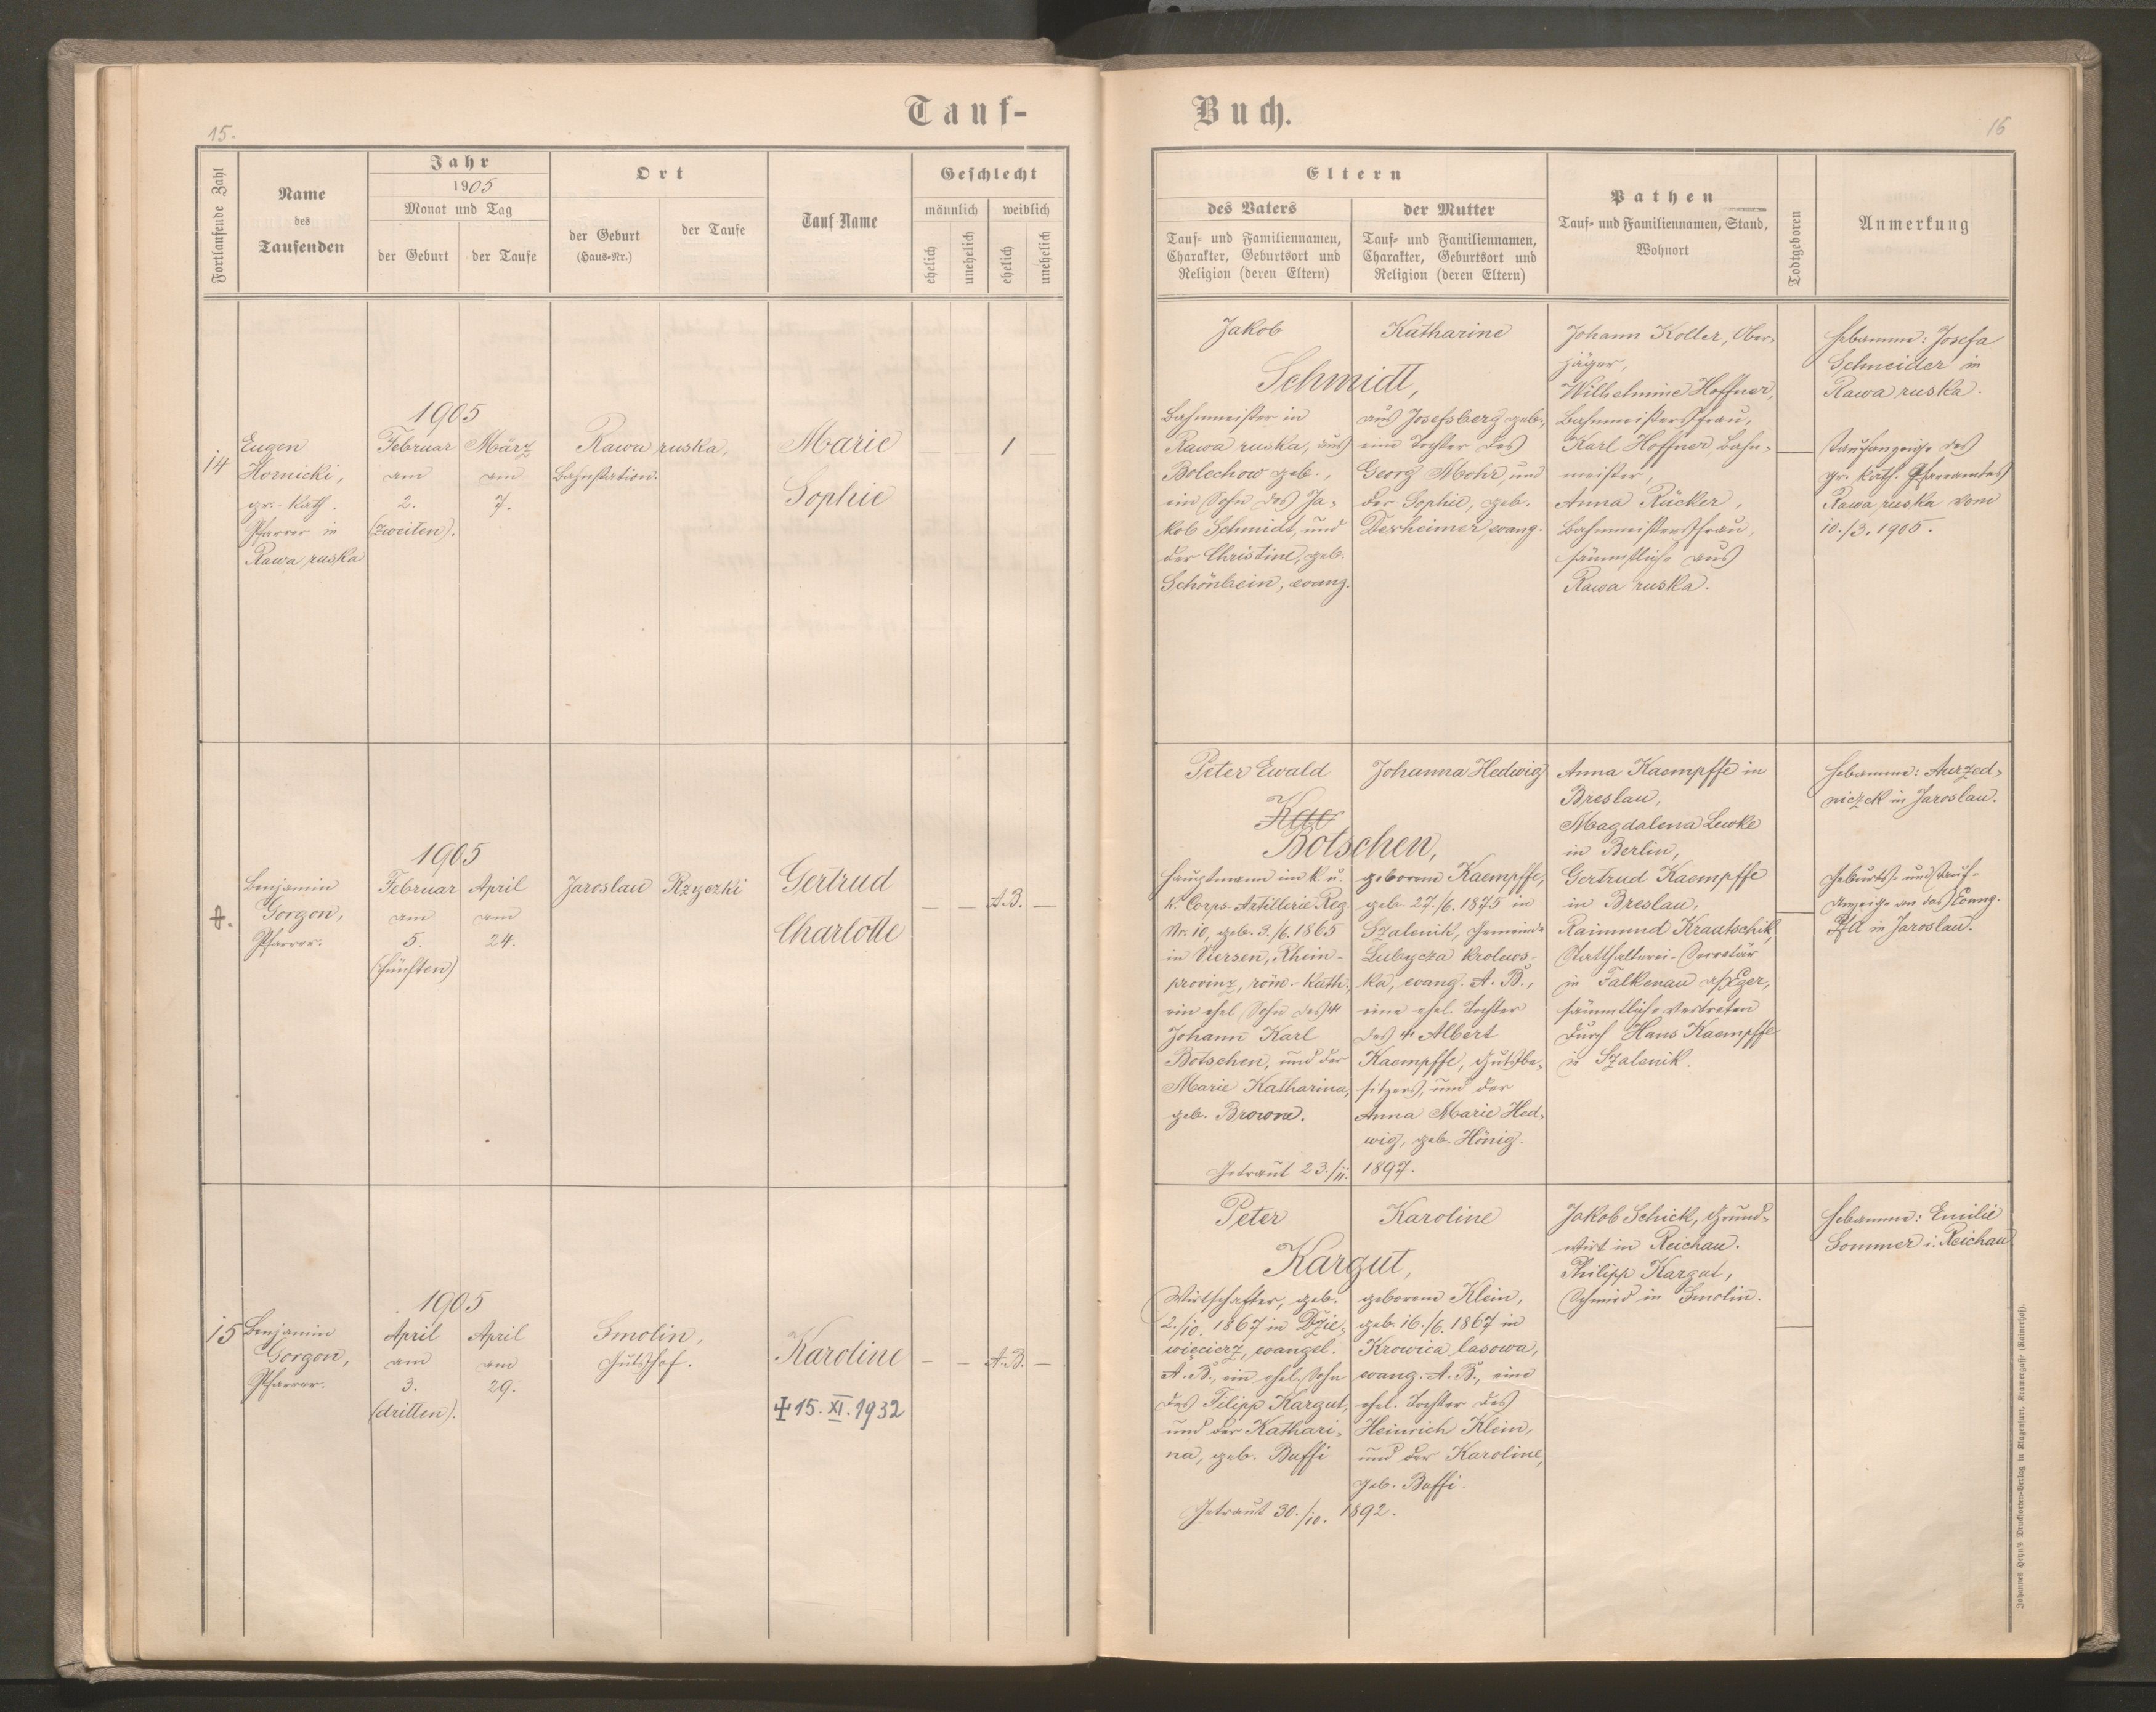 Tauf-
Buch.
15.
16
Fortlaufende Zahl
Name
des
Taufenden
Jahr
1905
Monat und Tag
der Geburt
der Taufe
Ort
der Geburt
(Haus-Nr.)
der Taufe
Tauf Name
Geschlecht
männlich
weiblich
ehelich
unehelich
ehelich
unehelich
Eltern
des Vaters
Tauf- und Familiennamen,
Charakter, Geburtsort und
Religion (deren Eltern)
der Mutter
Tauf- und Familiennamen,
Charakter, Geburtsort und
Religion (deren Eltern)
Pathen
Tauf- und Familiennamen, Stand,
Wohnort
Todtgeboren
Anmerkung
14
Eugen
Hornicki,
gr.-kath.
Pfarrer in
Rawa ruska
1905
Februar
am
2.
(zweiten).
März
am
7.
Rawa ruska,
Bahnstation.
Marie
Sophie
— 1 —
Jakob
Katharine
Schmidt,
Bahnmeister in
Rawa ruska, aus
Bolechow geb.,
ein Sohn des Ja-
kob Schmidt, und
der Christine, geb.
Schönhein, evang.
aus Josefsberg geb.,
eine Tochter des
Georg Mohr, und
der Sophie, geb.
Dexheimer, evang.
Johann Koller, Ober-
jäger,
Wilhelmine Hoffner,
Bahnmeistersfrau,
Karl Hoffner, Bahn-
meister,
Anna Rücker,
Bahnmeistersfrau,
sämmtliche aus
Rawa ruska.
—
Hebamme: Josefa
Schneider in
Rawa ruska.
Taufanzeige des
gr. kath. Pfarramtes
Rawa ruska vom
10./3. 1905.
Benjamin
Gorgon,
Pfarrer.
1905
Februar
am
5.
(fünften)
April
am
24.
Jaroslau
Rzyczki
Gertrud
Charlotte
— — A.B. —
Peter Ewald
Johanna Hedwig
Botschen,
Hauptmann im k. u.
k. Corps-Artillerie Reg.
Nr. 10, geb. 3./6. 1865
in Viersen, Rhein-
provinz, röm.-kath.,
ein ehel. Sohn des †
Johann Karl
Botschen, und der
Marie Katharina,
geb. Browne.
geborene Kaempffe,
geb. 27./6. 1875 in
Szalenik, Gemeinde
Lubycza krolews-
ka, evang. A. B.,
eine ehel. Tochter
des † Albert
Kaempffe, Gutsbe-
sitzers, und der
Anna Marie Hed-
wig, geb. Hönig.
Getraut 23./11. 1897.
Anna Kaempffe in
Breslau,
Magdalena Lewke
in Berlin,
Gertrud Kaempffe
in Breslau,
Raimund Krautschik,
Statthalterei-Secretär
in Falkenau a/Eger,
sämmtliche vertreten
durch Hans Kaempffe
in Szalenik.
—
Hebamme: Aurzed-
niczek in Jaroslau.
Geburts- und Tauf-
Anzeige an das Evang.
Pfa in Jaroslau.
15
Benjamin
Gorgon,
Pfarrer.
1905
April
am
3.
(dritten).
April
am
29.
Smolin,
Gutshof.
Karoline
‡ 15. XI. 1932
— — A.B. —
Peter
Karoline
Kargut,
Wirtschafter, geb.
2./10. 1867 in Dzie-
więcierz, evangel.
A. B., ein ehel. Sohn
des Filipp Kargut,
und der Kathari-
na, geb. Buffi
geborene Klein,
geb. 16./6. 1867 in
Krowica lasowa,
evang. A. B., eine
ehel. Tochter des
Heinrich Klein,
und der Karoline,
geb. Buffi.
Getraut 30./10. 1892.
Jakob Schick, Grund-
wirt in Reichau.
Philipp Kargut,
Schmied in Smolin.
—
Hebamme: Emilie
Sommer i. Reichau
Johannes Heyn's Drucksorten-Verlag in Klagenfurt, Kramergasse (Rainerhof).